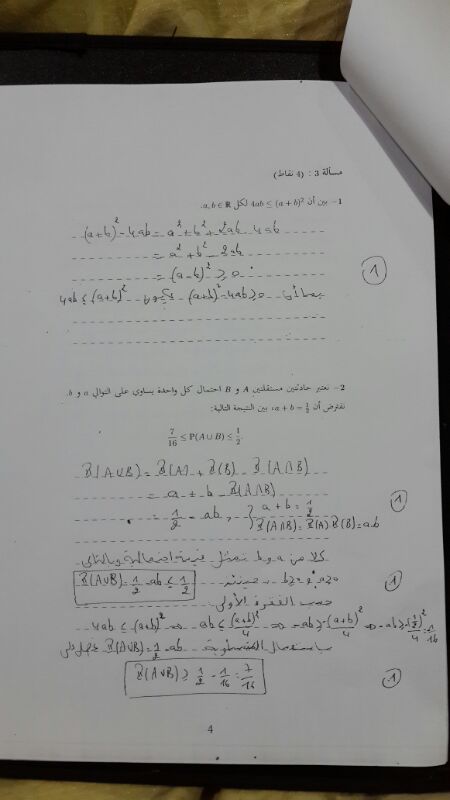 مسألة 3 : (4 نقاط)
1- بين أن 4ab ≤ (a + b)² لكل a, b ∈ ℝ.
(a+b)² - 4ab = a² + b² + 2ab - 4ab
= a² + b² - 2ab
= (a-b)² ≥ 0
بما أن (a+b)² - 4ab ≥ 0 يكون 4ab ≤ (a+b)²
1
2- نعتبر حادثتين مستقلتين A و B احتمال كل واحدة يساوي على التوالي a و b.
نفترض أن a + b = 1/2، بين النتيجة التالية:
7/16 ≤ P(A ∪ B) ≤ 1/2.
P(A∪B) = P(A) + P(B) - P(A∩B)
= a + b - P(A∩B)
= 1/2 - ab, { a + b = 1/2
P(A∩B) = P(A) P(B) = ab
1
كلا من a و b تمثل قيمة احتمالية وبالتالي
a ≥ 0 و b ≥ 0 حينئذ P(A∪B) = 1/2 - ab ≤ 1/2
1
حسب الفقرة الأولى
4ab ≤ (a+b)² ⇒ ab ≤ (a+b)²/4 ⇒ -ab ≥ -(a+b)²/4 ⇒ -ab ≥ -(1/2)²/4 = -1/16
باستعمال P(A∪B) = 1/2 - ab
P(A∪B) ≥ 1/2 - 1/16 = 7/16
1
4